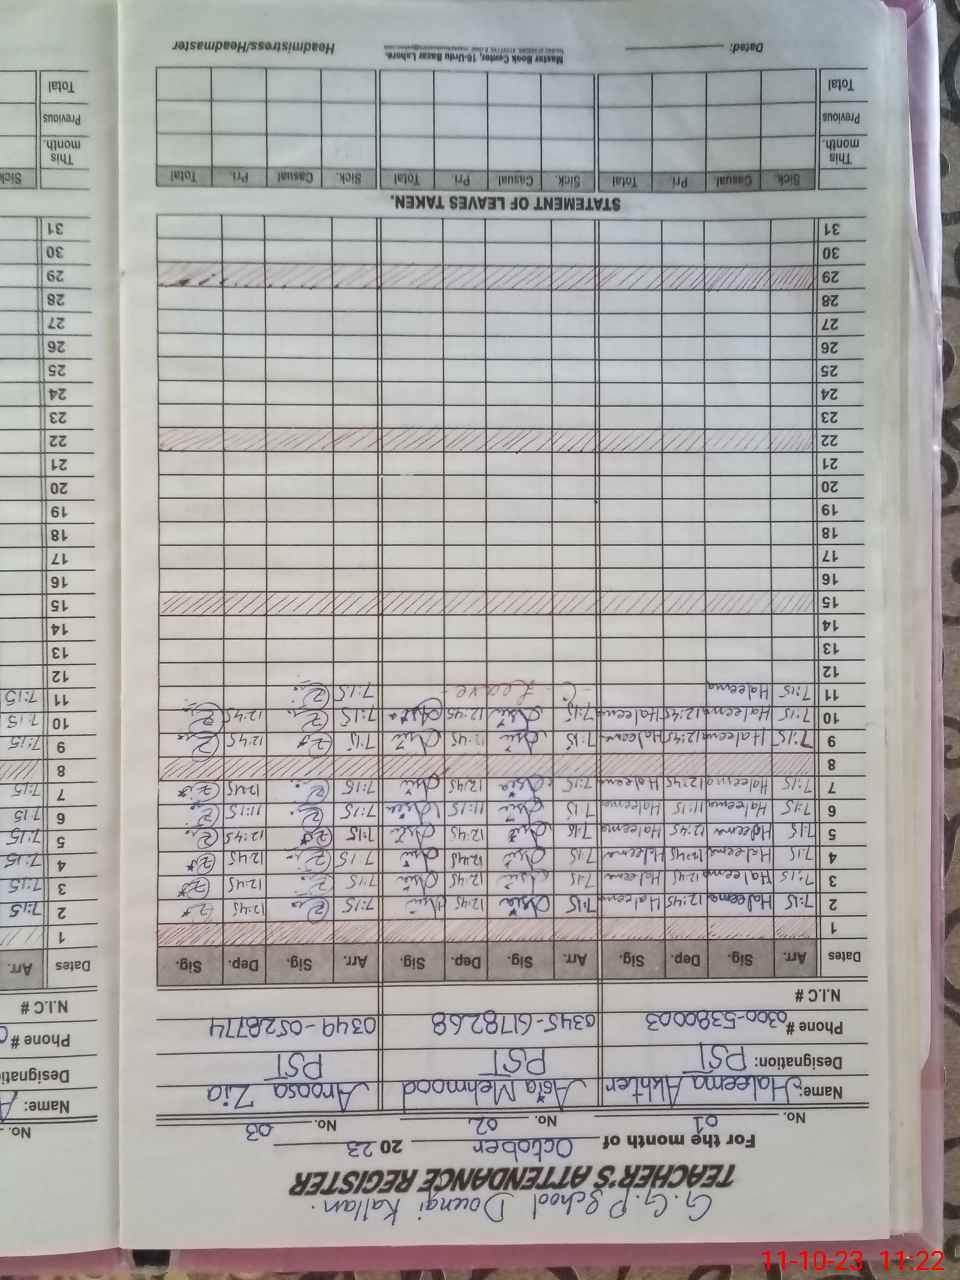 G.G.P School Doungi Kallan.
TEACHER'S ATTENDANCE REGISTER
For the month of October 2023
No. 01 No. 02 No. 03 No.
Name: Haleema Akhter Asia Mehmood Aroosa Zia Name: A
Designation: PST PST PST Designatio
Phone # 0300-5380003 0345-6178268 0349-0528774 Phone #
N.I.C # N.I.C #
Dates Arr. Sig. Dep. Sig. Arr. Sig. Dep. Sig. Arr. Sig. Dep. Sig. Dates Arr.
1 1
2 7:15 Haleema 12:45 Haleema 7:15 Asia 12:45 7:15 12:45 2 7:15
3 7:15 Haleema 12:45 Haleema 7:15 Asia 12:45 Asia 7:15 12:45 3 7:15
4 7:15 Haleema 12:45 Haleema 7:15 Asia 12:45 Asia 7:15 12:45 4 7:15
5 7:15 Haleema 12:45 Haleema 7:15 Asia 12:45 Asia 7:15 12:45 5 7:15
6 7:15 Haleema 11:15 Haleema 7:15 Asia 11:15 Asia 7:15 11:15 6 7:15
7 7:15 Haleema 12:45 Haleema 7:15 Asia 12:45 Asia 7:15 12:45 7 7:15
8 8
9 7:15 Haleema 12:45 Haleema 7:15 Asia 12:45 Asia 7:15 12:45 9 7:15
10 7:15 Haleema 12:45 Haleema 7:15 Asia 12:45 Asia 7:15 12:45 10 7:15
11 7:15 Haleema - C - Leave - 7:15 11 7:15
12 12
13 13
14 14
15 15
16 16
17 17
18 18
19 19
20 20
21 21
22 22
23 23
24 24
25 25
26 26
27 27
28 28
29 29
30 30
31 31
STATEMENT OF LEAVES TAKEN.
Sick. Casual Pri. Total Sick. Casual Pri. Total Sick. Casual Pri. Total Sick
This month. This month.
Previous Previous
Total Total
Master Book Center, 16-Urdu Bazar Lahore.
Dated: Headmistress/Headmaster
11-10-23 11:22